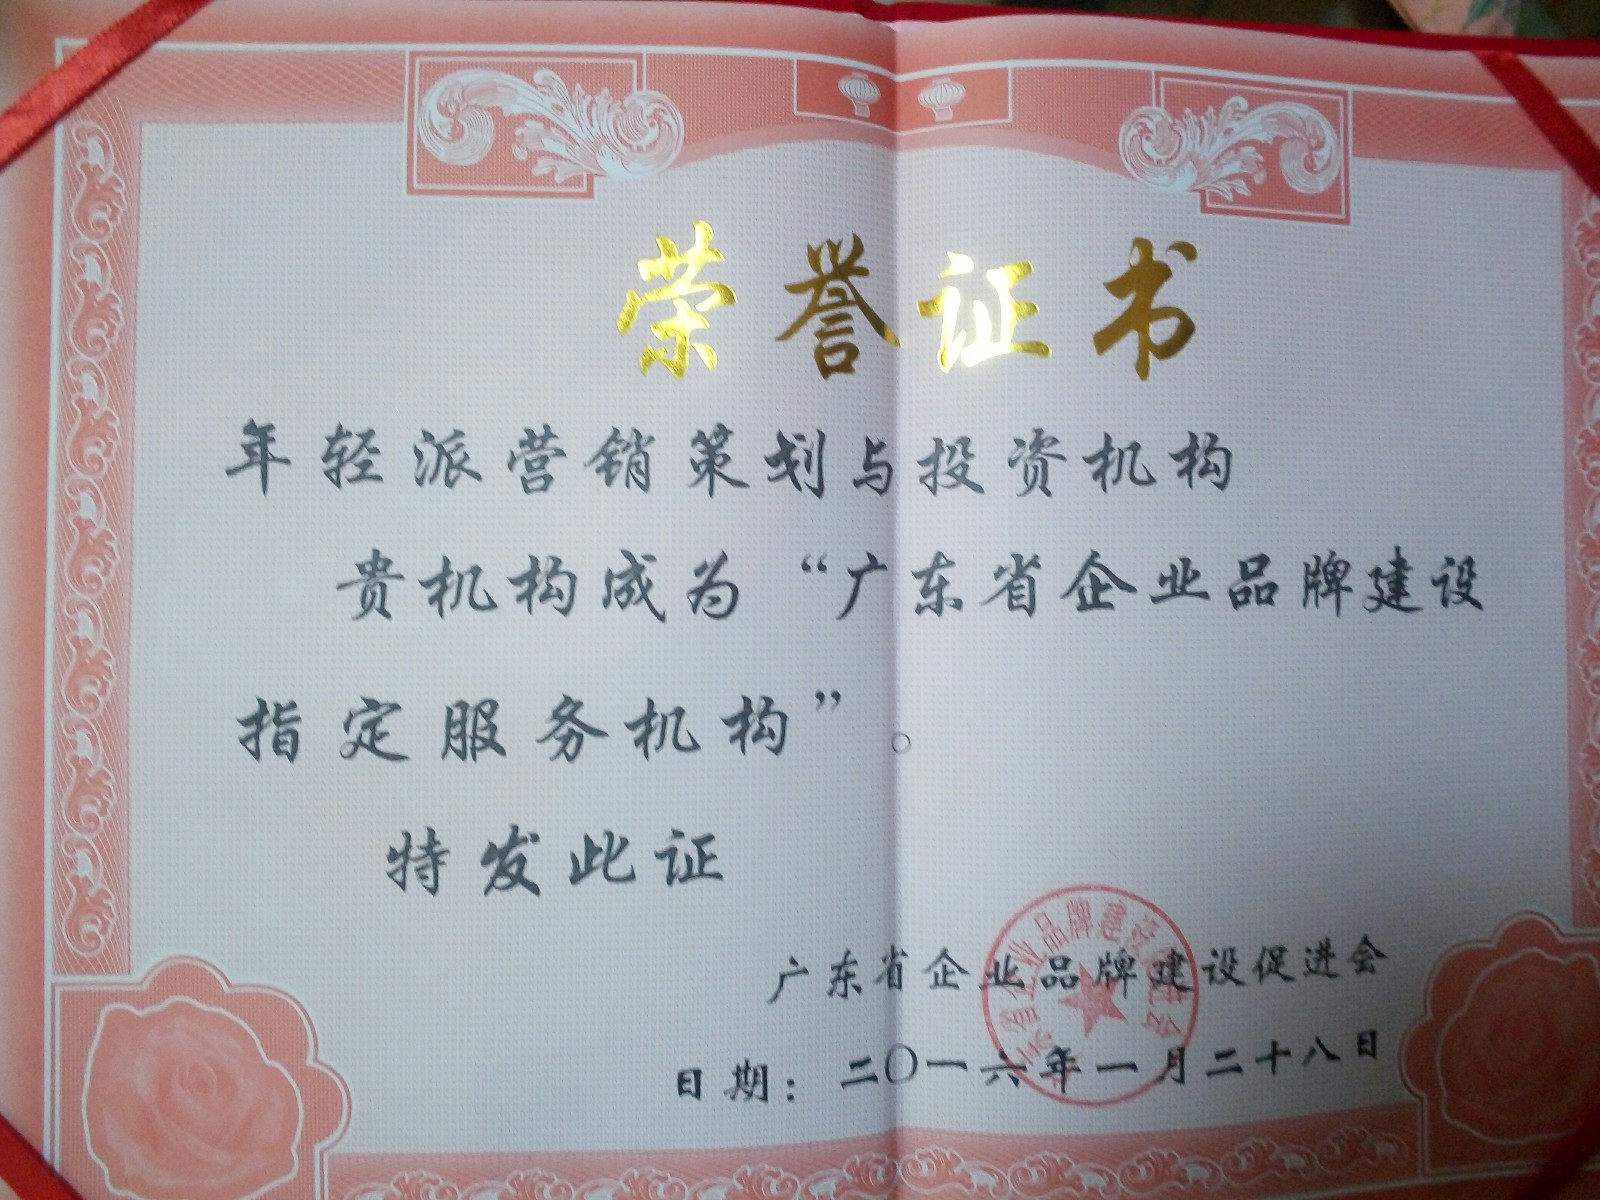 荣誉证书
年轻派营销策划与投资机构
贵机构成为“广东省企业品牌建设
指定服务机构”。
特发此证
广东省企业品牌建设促进会
日期：二〇一六年一月二十八日